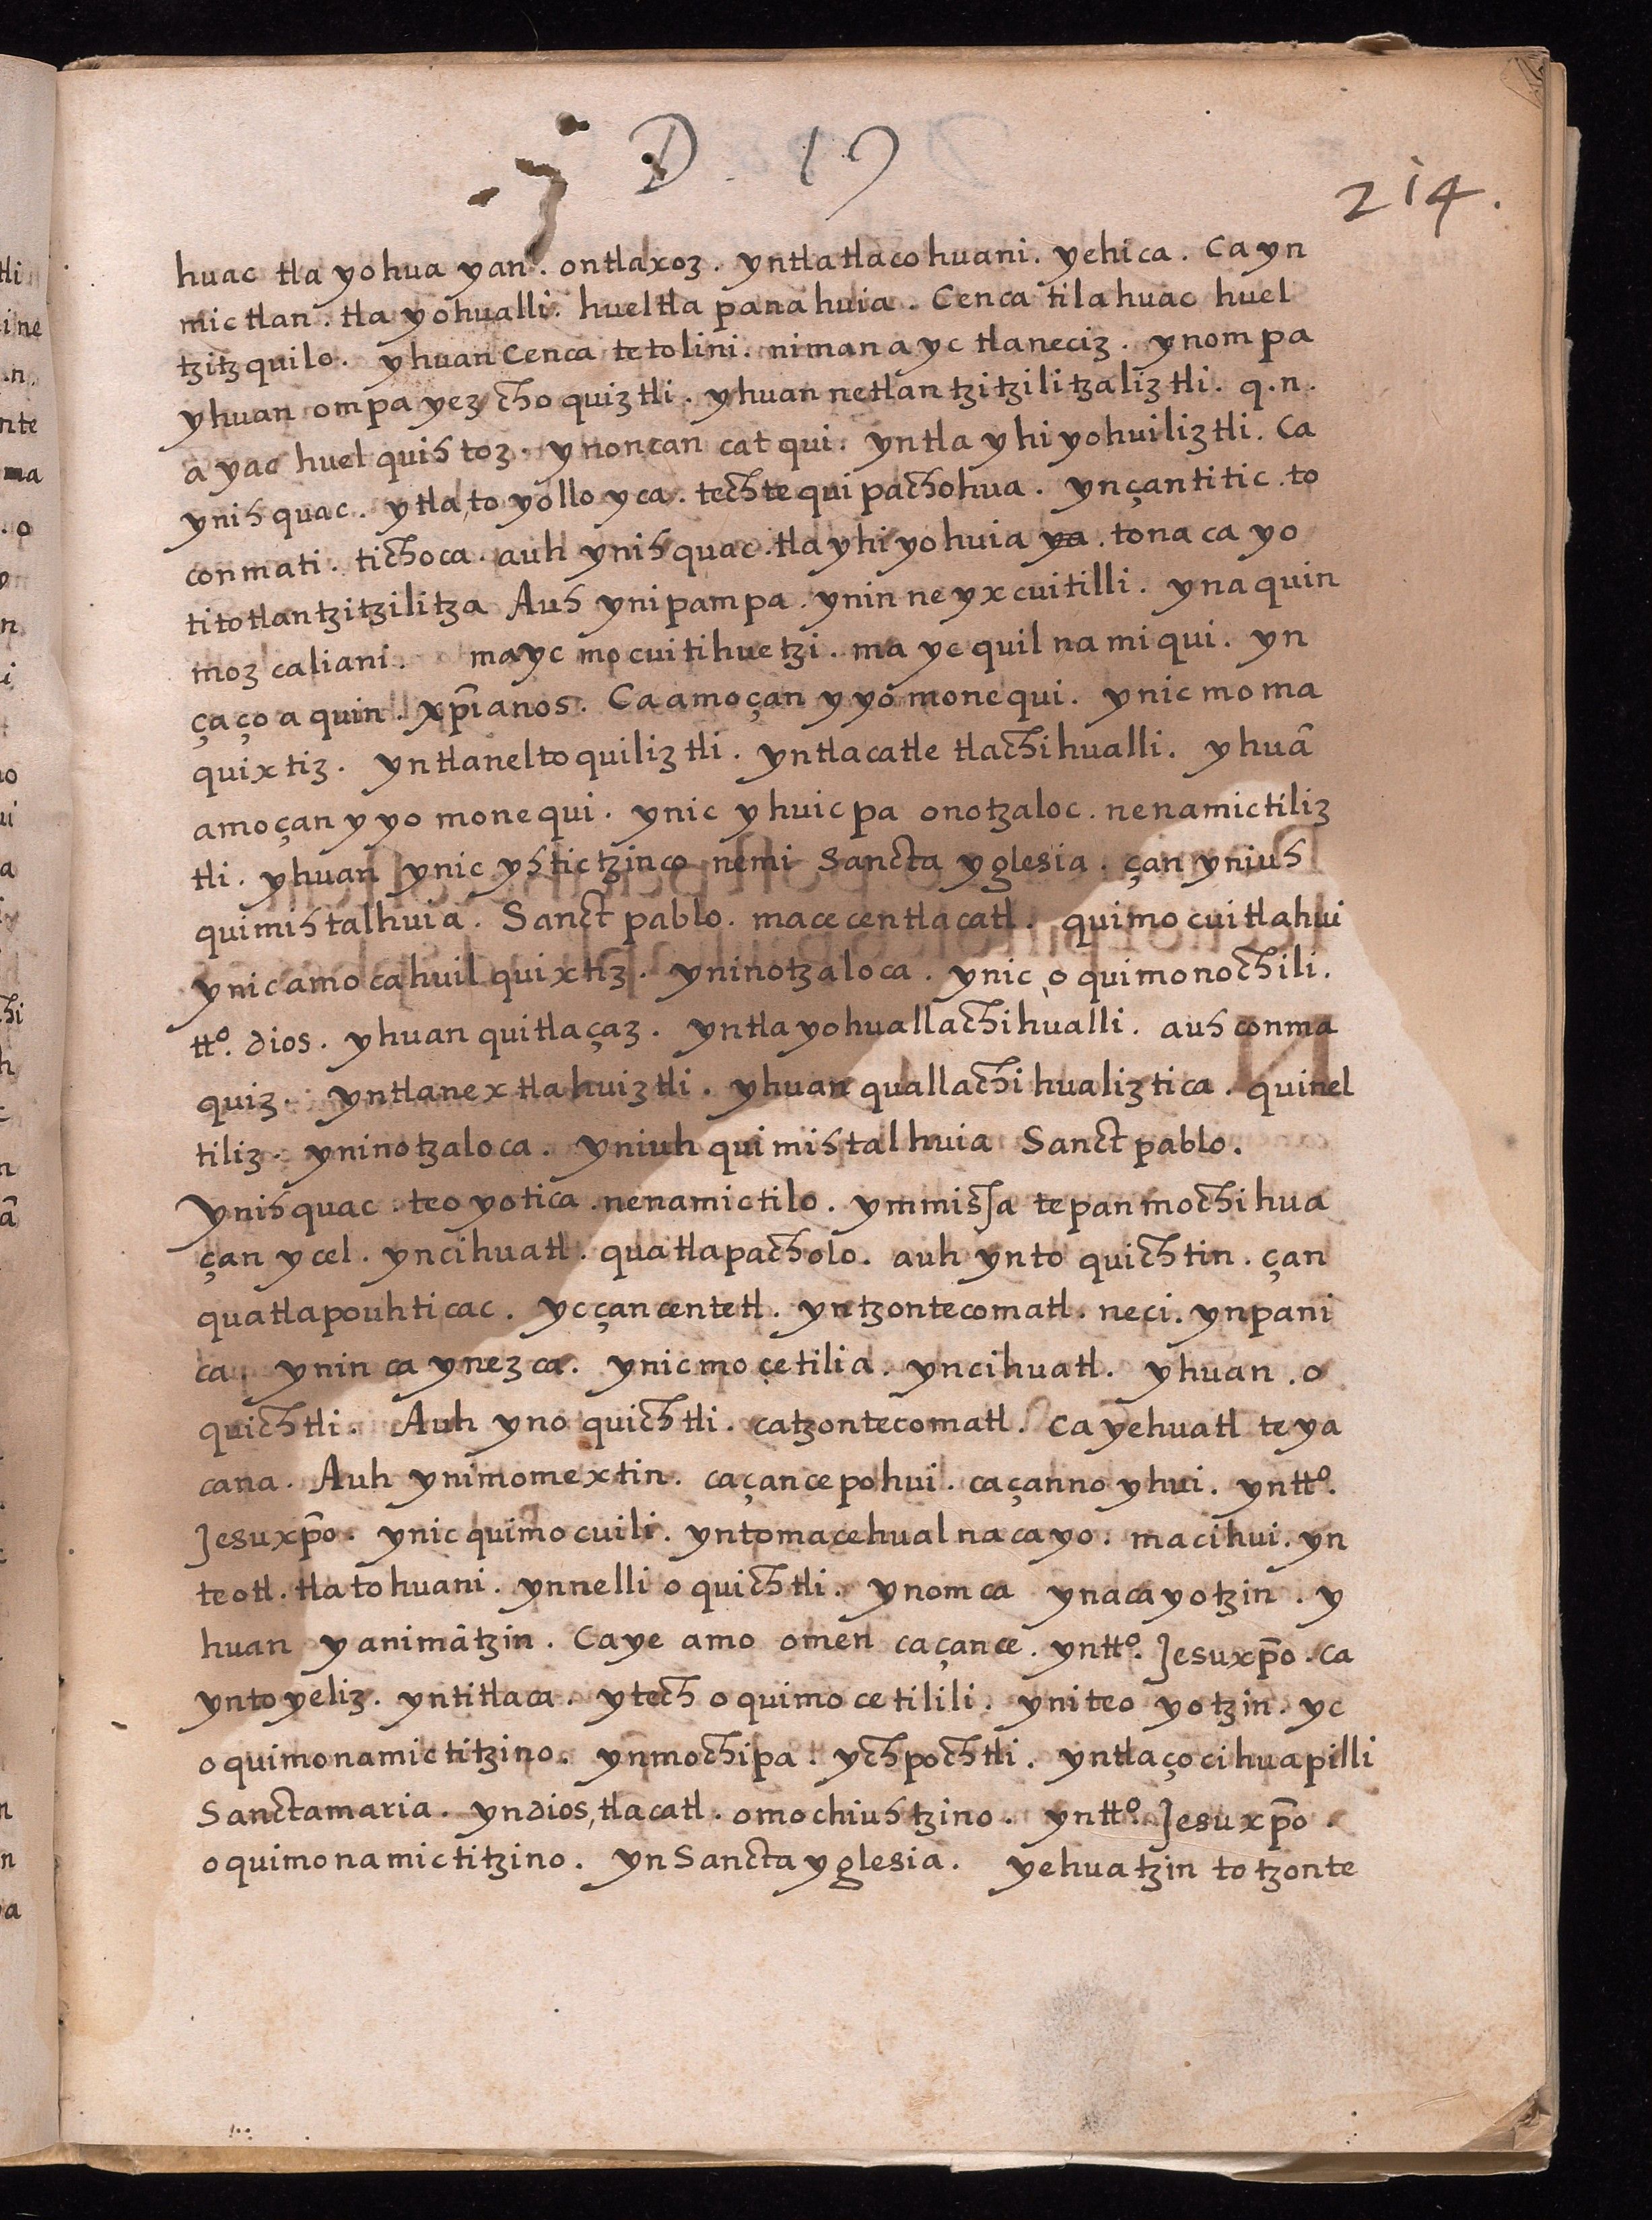 D. 19
214.
huac tla yohua yan. ontlaxoz. yntlatlacohuani. yehica. Ca yn
mictlan. tla yohualli. hueltla panahuia. Cenca tilahuac huel
tzitzquilo. yhuan Cenca tetolini. niman ayc tlaneciz. ynompa
yhuan ompa yez choquiztli. yhuan netlantzitzilitzaliztli. q.n.
a yac huel quistoz. ynoncan catqui. yntla yhiyohuiliztli. Ca
ynisquac. ytla, to yollo yca. techtequipachohua. ynçantitic. to
conmati. tichoca. auh ynisquac. tla yhiyohuia ya. tonacayo
titotlantzitzilitza Aus ynipampa. ynin neyxcuitilli. ynaquin
mozcaliani. mayc mocuitihuetzi. ma yc quilnamiqui. yn
çaço aquin. xp̄ianos. Ca amoçan yyo monequi. ynic moma
quixtiz. yntlaneltoquiliztli. yntlacatle tlachihualli. yhuā
amoçan yyo monequi. ynic yhuicpa onotzaloc. nenamictiliz
tli. yhuan ynic ystictzinco nemi Sancta yglesia. çan ynius
quimistalhuia. Sanct pablo. macecentlacatl. quimocuitlahui
ynic amo cahuilquixtiz. yninotzaloca. ynic, oquimonochili.
tt.º dios. yhuan quitlaçaz. yntla yohuallachihualli. aus conma
quiz. yntlanextlahuiztli. yhuan quallachihualiztica. quinel
tiliz. yninotzaloca. yniuh quimistalhuia Sanct pablo.
Ynisquac. teoyotica. nenamictilo. ymmissa tepan mochihua
çan ycel. yncihuatl. quatlapacholo. auh ynto quichtin. çan
quatlapouhticac. ycçancentetl. yntzontecomatl. neci. ynpani
ca. ynin ca ynezca. ynicmocetilia. yncihuatl. yhuan. o
quichtli. Auh yno quichtli. catzontecomatl. Ca yehuatl teya
cana. Auh ynimomextin. caçancepohui. caçanno yhui. yntt.º
Jesuxp̄o. ynic quimocuili. yntomacehualnacayo. macihui. yn
teotl. tlatohuani. ynnelli oquichtli. ynomca ynacayotzin. y
huan yanimātzin. Caye amo omen caçance. yntt.º Jesuxp̄o. ca
ynto yeliz. yntitlaca. ytech oquimocetilili. yniteo yotzin. yc
oquimonamictitzino. ynmochipa. ychpochtli. yntlaçocihuapilli
Sanctamaria. yndios, tlacatl. omochiustzino. yntt.º Jesuxp̄o.
oquimonamictitzino. ynSancta yglesia. yehuatzin totzonte